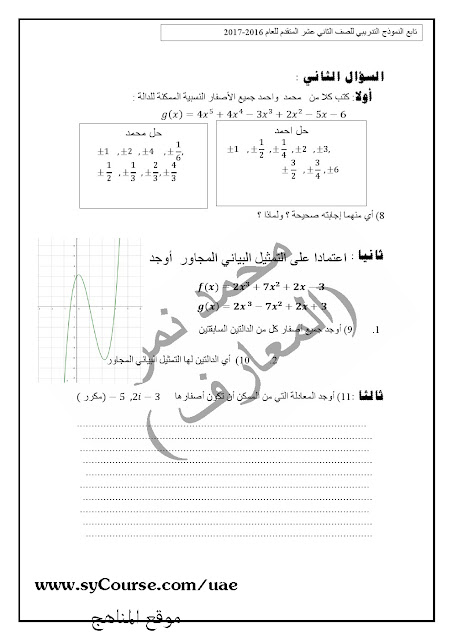 تابع النموذج التدريبي للصف الثاني عشر المتقدم للعام 2016-2017
السؤال الثاني :
أولا: كتب كلا من محمد واحمد جميع الأصفار النسبية الممكنة للدالة :
g(x) = 4x⁵ + 4x⁴ − 3x³ + 2x² − 5x − 6
حل احمد
±1 ,±1/2 ,±1/4 ,±2 ,±3,
±3/2 ,±3/4 ,±6
حل محمد
±1 ,±2 ,±4 ,±1/6,
±1/2 ,±1/3 ,±2/3,±4/3
8) أي منهما إجابته صحيحة ؟ ولماذا ؟
ثانيا : اعتمادا على التمثيل البياني المجاور أوجد
f(x) = 2x³ + 7x² + 2x − 3
g(x) = 2x³ − 7x² + 2x + 3
1. 9) أوجد جميع أصفار كل من الدالتين السابقتين
2 10) أي الدالتين لها التمثيل البياني المجاور
ثالثا :11) أوجد المعادلة التي من الممكن أن تكون أصفارها 2i − 3, 5 − ( مكرر )
محمد نمر
(المعارف)
www.syCourse.com/uae
موقع المناهج